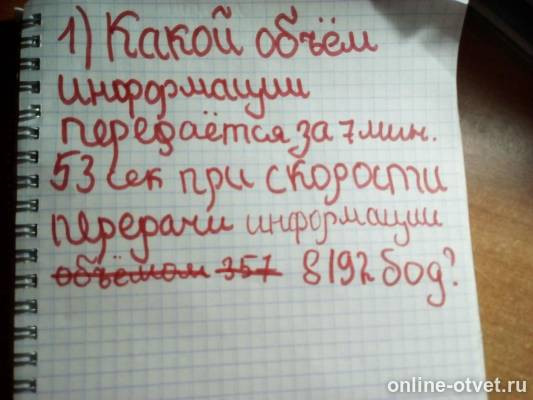 1) Какой объём
информации
передаётся за 7 мин.
53 сек при скорости
передачи информации
объёмом 357 8192 бод?
online-otvet.ru